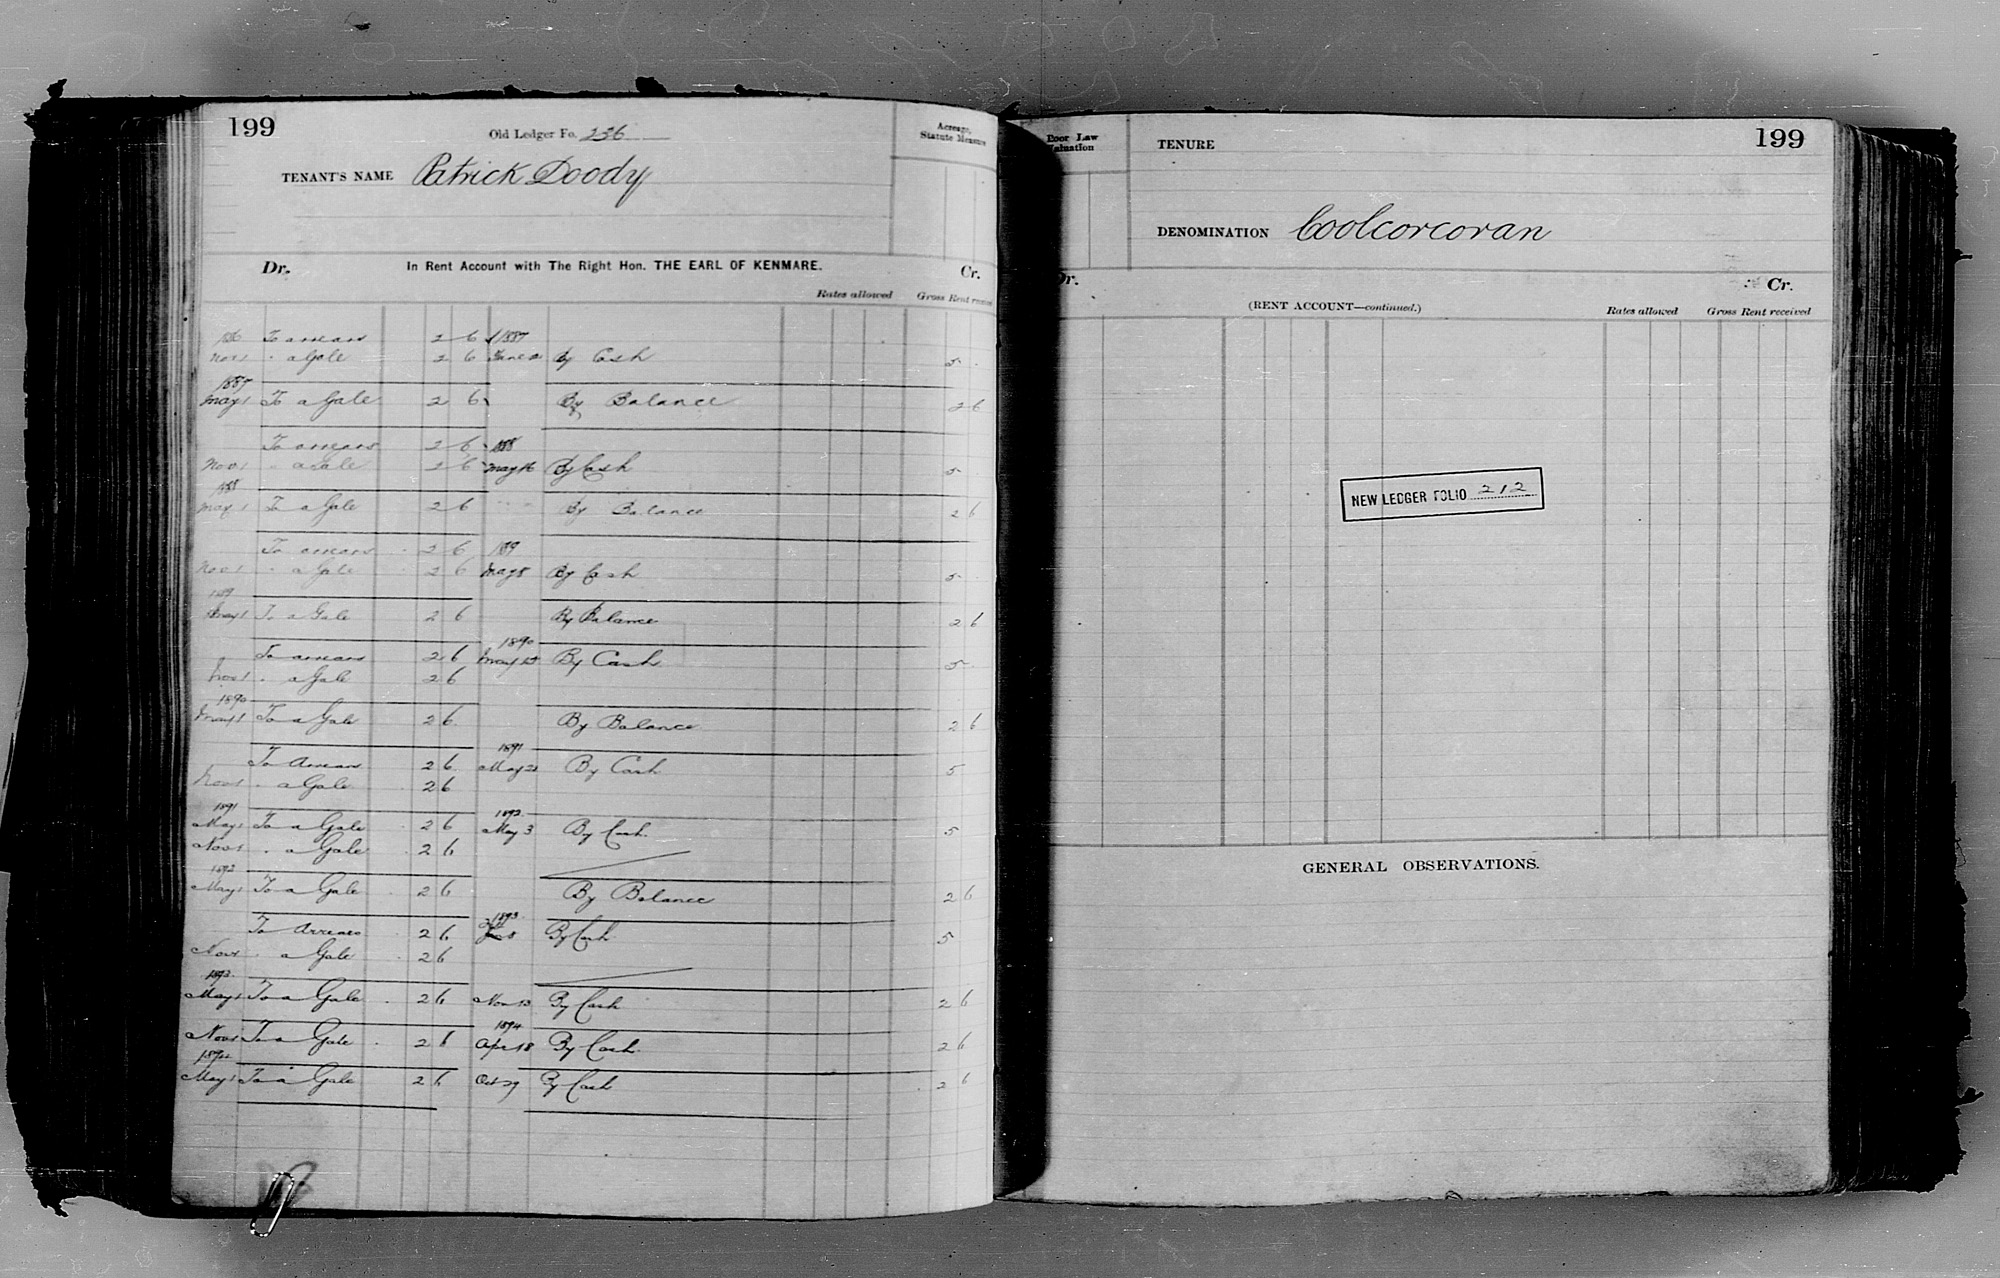 199
Old Ledger Fo. 236
Acreage, Statute Measure
TENANT'S NAME Patrick Doody
Dr. In Rent Account with The Right Hon. THE EARL OF KENMARE. Cr.
Rates allowed Gross Rent received
To arrears 2 6 1887
Nov 1 " a Gale 2 6 June By Cash 5
1887
May 1 To a Gale 2 6 By Balance 2 6
To arrears 2 6 1888
Nov 1 " a Gale 2 6 May 16 By Cash 5
1888
May 1 To a Gale 2 6 By Balance 2 6
To arrears 2 6 1889
Nov 1 " a Gale 2 6 May 8 By Cash 5
1889
May 1 To a Gale 2 6 By Balance 2 6
1890
To arrears 2 6 May By Cash 5
Nov 1 " a Gale 2 6
1890
May 1 To a Gale 2 6 By Balance 2 6
1891
To Arrears 2 6 May 21 By Cash 5
Nov 1 " a Gale 2 6
1891 1892
May 1 To a Gale 2 6 May 3 By Cash 5
Nov 1 " a Gale 2 6
1892
May 1 To a Gale 2 6 By Balance 2 6
1893
To Arrears 2 6 By Cash 5
Nov 1 " a Gale 2 6
1893
May 1 To a Gale 2 6 Nov 13 By Cash 2 6
1894
Nov 1 To a Gale 2 6 Apr 18 By Cash 2 6
1894
May 1 To a Gale 2 6 Oct 29 By Cash 2 6
Poor Law Valuation
TENURE
199
DENOMINATION Coolcorcoran
Dr. Cr.
(RENT ACCOUNT—continued.) Rates allowed Gross Rent received
NEW LEDGER FOLIO 212
GENERAL OBSERVATIONS.